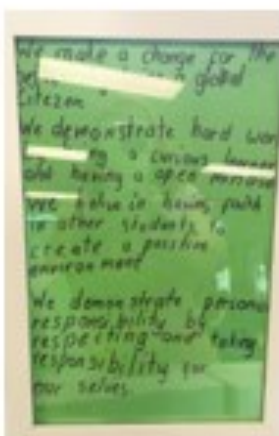 We make a change for the
a global
Citezen
We demonstrate hard wor
a curious learner
and having a open
We belive in having faith
in other students to
create a positive
environment
We demonstrate personal
responsibility by
respecting and taking
responsibility for
our selves